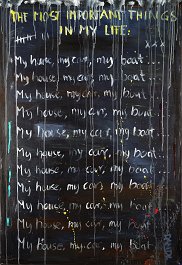 THE MOST IMPORTANT THINGS
IN MY LIFE:
My house, my car, my boat...
My house, my car, my boat...
My house, my car, my boat...
My house, my car, my boat...
My house, my car, my boat...
My house, my car, my boat...
My house, my car, my boat...
My house, my car, my boat...
My house, my car, my boat...
My house, my car, my boat
My house, my car, my boat